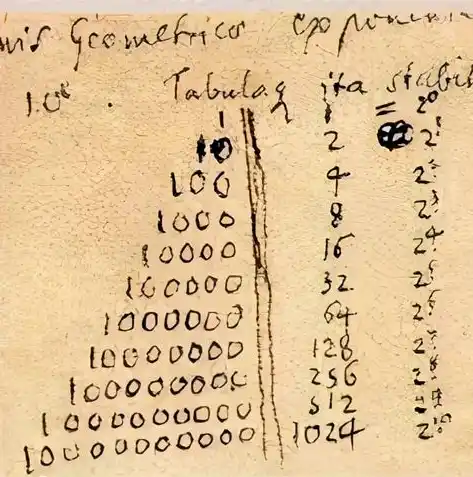 Geometrico
Tabula ita stabil
1 1 = 2⁰
10 2 2¹
100 4 2²
1000 8 2³
10000 16 2⁴
100000 32 2⁵
1000000 64 2⁶
10000000 128 2⁷
100000000 256 2⁸
1000000000 512 2⁹
10000000000 1024 2¹⁰